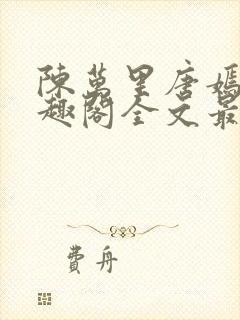 陳萬里唐嫣
趣閣全文最
費舟